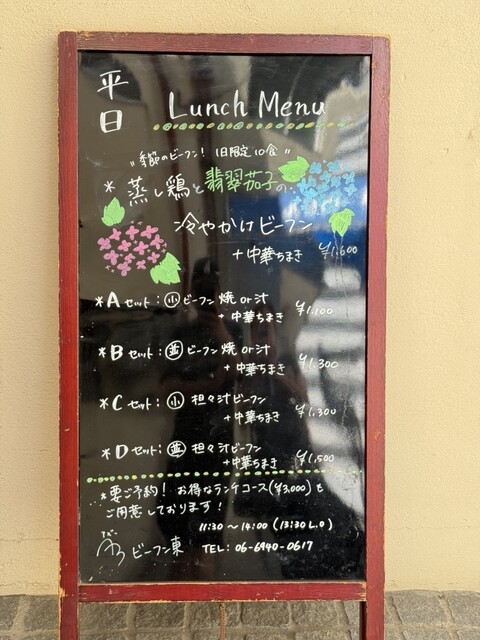 平日
Lunch Menu
〃季節のビーフン! 1日限定10食〃
* 蒸し鶏と翡翠茄子の
冷やかけビーフン
+中華ちまき ¥1,600
*Aセット:㊙ビーフン 焼or汁
+中華ちまき ¥1,100
*Bセット:(並)ビーフン 焼or汁
+中華ちまき ¥1,300
*Cセット:(小)担々汁ビーフン
+中華ちまき ¥1,300
*Dセット:(並)担々汁ビーフン
+中華ちまき ¥1,500
*要ご予約! お得なランチコース(¥3,000)も
ご用意しております!
11:30〜14:00(13:30L.O)
ビーフン東 TEL:06-6940-0617